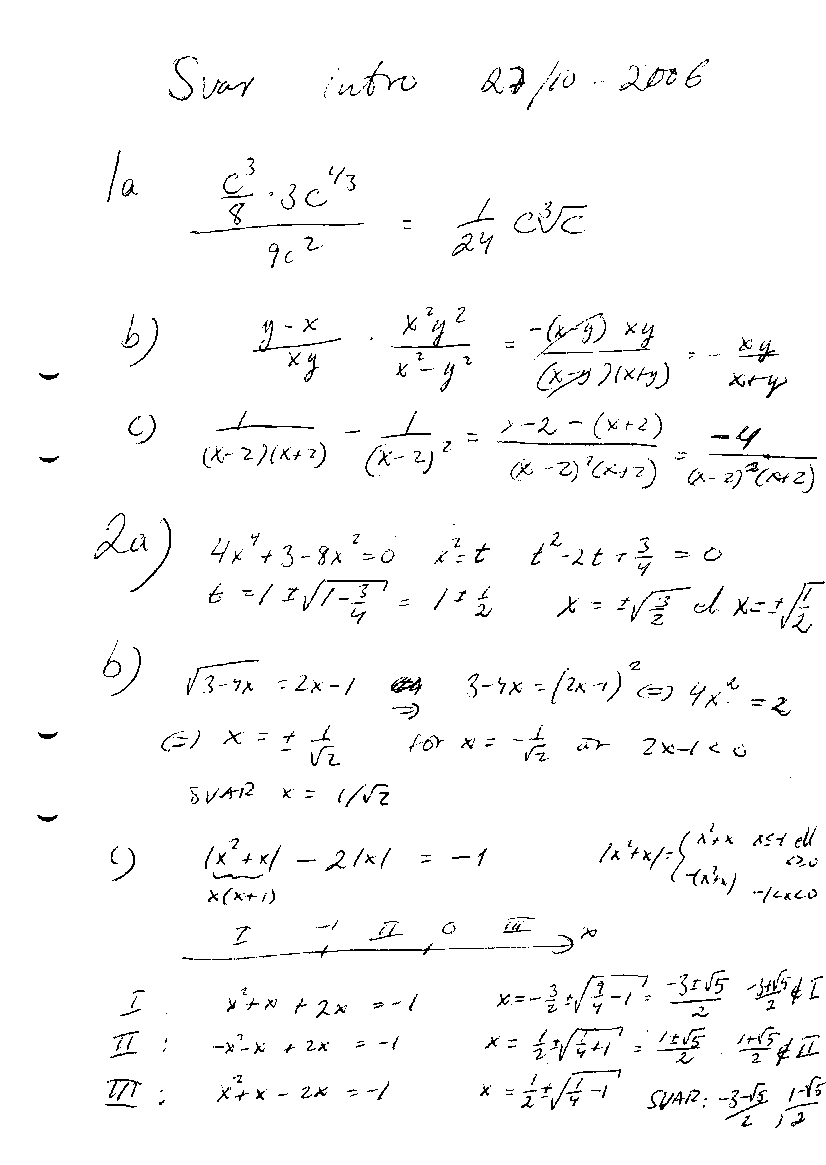 Svar intro 27/10 - 2006
1a \frac{\frac{c^3}{8} \cdot 3c^{4/3}}{9c^2} = \frac{1}{24} c\sqrt[3]{c}
b) \frac{y-x}{xy} \cdot \frac{x^2y^2}{x^2-y^2} = \frac{-(x-y) xy}{(x-y)(x+y)} = - \frac{xy}{x+y}
c) \frac{1}{(x-2)(x+2)} - \frac{1}{(x-2)^2} = \frac{x-2-(x+2)}{(x-2)^2(x+2)} = \frac{-4}{(x-2)^2(x+2)}
2a) 4x^4+3-8x^2=0 x^2=t t^2-2t+\frac{3}{4} = 0
t = 1 ± \sqrt{1-\frac{3}{4}} = 1 ± \frac{1}{2} x = ±\sqrt{\frac{3}{2}} el x=±\sqrt{\frac{1}{2}}
b) \sqrt{3-4x} = 2x-1 ⇒ 3-4x=(2x-1)^2 ⇔ 4x^2 = 2
⇔ x = ± \frac{1}{\sqrt{2}} för x = -\frac{1}{\sqrt{2}} är 2x-1 < 0
SVAR x = 1/\sqrt{2}
c) |x^2+x| - 2|x| = -1 |x^2+x| = { x^2+x x≤-1 ell x≥0
x(x+1) -(x^2+x) -1<x<0
I -1 II 0 III x
I x^2+x+2x = -1 x=-\frac{3}{2}±\sqrt{\frac{9}{4}-1} = \frac{-3±\sqrt{5}}{2} \frac{-3+\sqrt{5}}{2} ∉ I
II : -x^2-x+2x = -1 x = \frac{1}{2}±\sqrt{\frac{1}{4}+1} = \frac{1±\sqrt{5}}{2} \frac{1+\sqrt{5}}{2} ∉ II
III : x^2+x-2x = -1 x = \frac{1}{2}±\sqrt{\frac{1}{4}-1} SVAR: \frac{-3-\sqrt{5}}{2}, \frac{1-\sqrt{5}}{2}